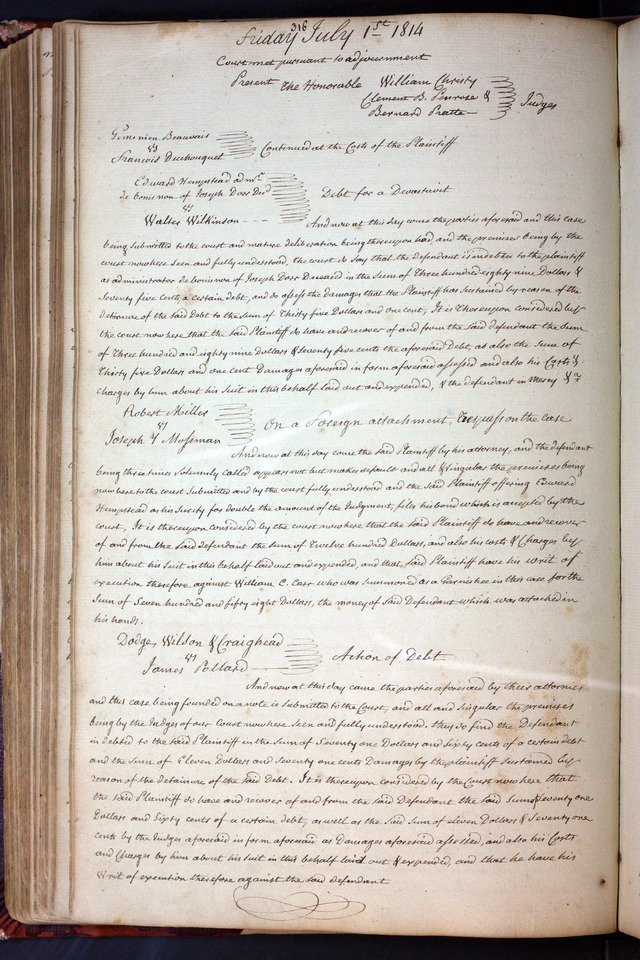 316
Friday July 1st 1814
Court met pursuant to adjournment
Present The Honorable William Christy
Clement B. Penrose &
Bernard Pratte
Judges
Beauvais
vs
Francois Duchouquet
Continued at the Costs of the Plaintiff
Edward Hempstead admr.
de bonis non of Joseph Dorr Decd
vs
Walter Wilkinson
Debt for a Devastavit
And now at this day come the parties aforesaid and this case
being submitted to the court and mature deliberation being thereupon had, and the premises being by the
court now here seen and fully understood, the court do say that the defendant is indebted to the plaintiff
as administrator de bonis non of Joseph Dorr Deceased in the Sum of Three hundred eighty nine Dollars &
Seventy five cents, a certain debt, and do assess the damages that the Plaintiff has sustained by reason of the
detainure of the said Debt to the Sum of Thirty five Dollars and one cent, It is Thereupon considered by
the court now here that the said Plaintiff do have and recover of and from the said defendant the Sum
of Three hundred and eighty nine Dollars & Seventy five cents the aforesaid Debt, as also the Sum of
Thirty five Dollars and one cent Damages aforesaid in form aforesaid assessed and also his Costs &
charges by him about his Suit in this behalf laid out and expended, & the defendant in Mercy &c
Robert Miller
vs
Joseph Y Mossman
On a Foreign attachment, trespass on the case
And now at this day come the said Plaintiff by his attorney, and the defendant
being three times Solemnly called appears not but makes default and all & singular the premises being
now here to the court Submitted and by the court fully understood and the said Plaintiff offering Edward
Hempstead as his Surety for double the amount of the Judgment, files his bond which is accepted by the
court, It is thereupon considered by the court now here that the said Plaintiff do have and recover
of and from the said defendant the Sum of Twelve hundred Dollars, and also his costs & Charges by
him about his Suit in this behalf laid out and expended, and that said Plaintiff have his writ of
execution therefore against William C. Carr who was summoned as a Garnishee in this case for the
Sum of Seven hundred and fifty eight Dollars, the money of said Defendant which was attached in
his hands.
Dodge, Wilson & Craighead
vs
James Pollard
Action of Debt
And now at this day came the parties aforesaid by their attornies
and this case being founded on a note is submitted to the Court, and all and singular the premises
being by the Judges of our Court now here seen and fully understood. they do find the Defendant
in debted to the said Plaintiff in the Sum of Seventy one Dollars and Sixty cents of a certain debt
and the Sum of Eleven Dollars and Seventy one cents Damages by the plaintiff Sustained by
reason of the detainure of the said Debt. It is thereupon considered by the Court now here that
the said Plaintiff do have and recover of and from the said Defendant the said Sum of Seventy one
Dollars and Sixty cents of a certain debt, as well as the said Sum of eleven Dollars & Seventy one
cents by the Judges aforesaid in form aforesaid as Damages aforesaid assessed, and also his Costs
and Charges by him about his Suit in this behalf laid out & expended, and that he have his
Writ of execution therefore against the said defendant